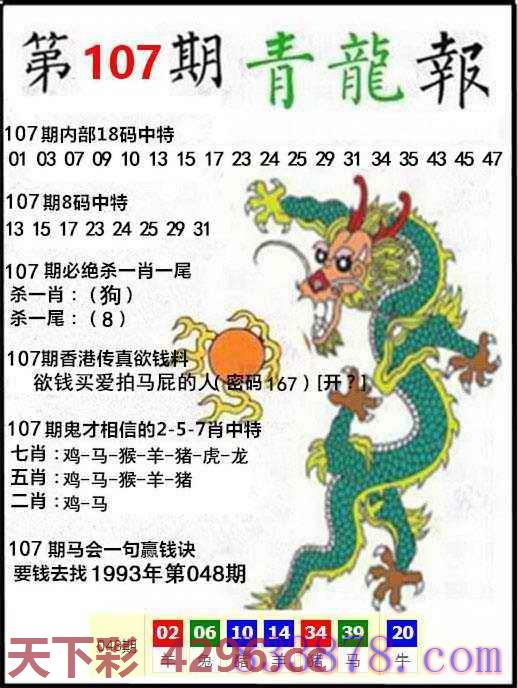 第107期 青龍報
107期内部18码中特
01 03 07 09 10 13 15 17 23 24 25 29 31 34 35 43 45 47
107期8码中特
13 15 17 23 24 25 29 31
107期必绝杀一肖一尾
杀一肖：（狗）
杀一尾：（8）
107期香港传真欲钱料
欲钱买爱拍马屁的人(密码167)[开?]
107期鬼才相信的2-5-7肖中特
七肖：鸡-马-猴-羊-猪-虎-龙
五肖：鸡-马-猴-羊-猪
二肖：鸡-马
107期马会一句赢钱诀
要钱去找1993年第048期
048期 02 06 10 14 34 39 20
羊 兔 猪 羊 猪 马 牛
天下彩 4296.cc
878.com